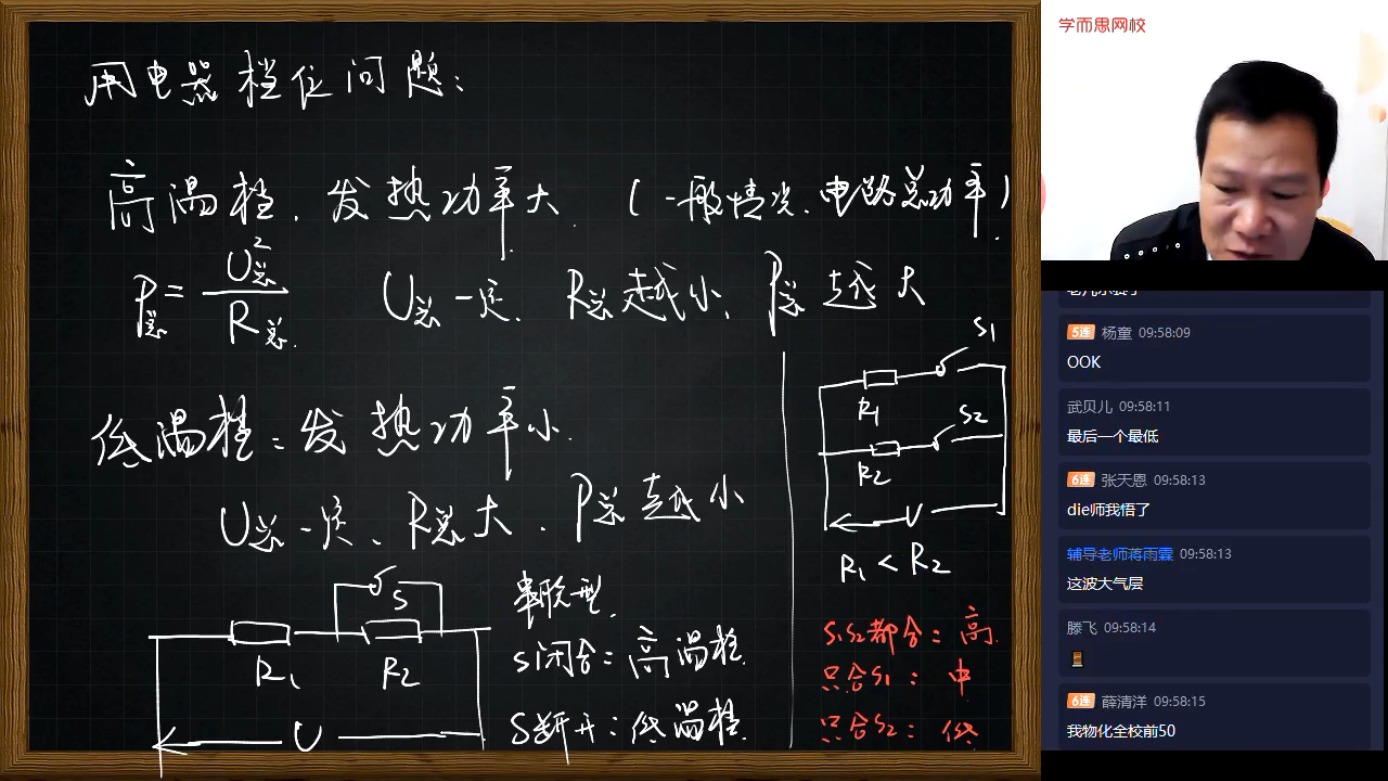 用电器档位问题:
高温档.发热功率大.(一般情况.电路总功率)
P总=U总²/R总.
U总一定.R总越小、P总越大
低温档:发热功率小.
U总一定、R总大.P总越小
S
R1
R2
U
串联型.
S闭合:高温档.
S断开:低温档.
S1
R1
S2
R2
U
R1<R2
S1S2都合:高.
只合S1:中
只合S2:低
学而思网校
5连 杨童 09:58:09
OOK
武贝儿 09:58:11
最后一个最低
6连 张天恩 09:58:13
die师我悟了
辅导老师蒋雨霖 09:58:13
这波大气层
滕飞 09:58:14
6连 薛清洋 09:58:15
我物化全校前50